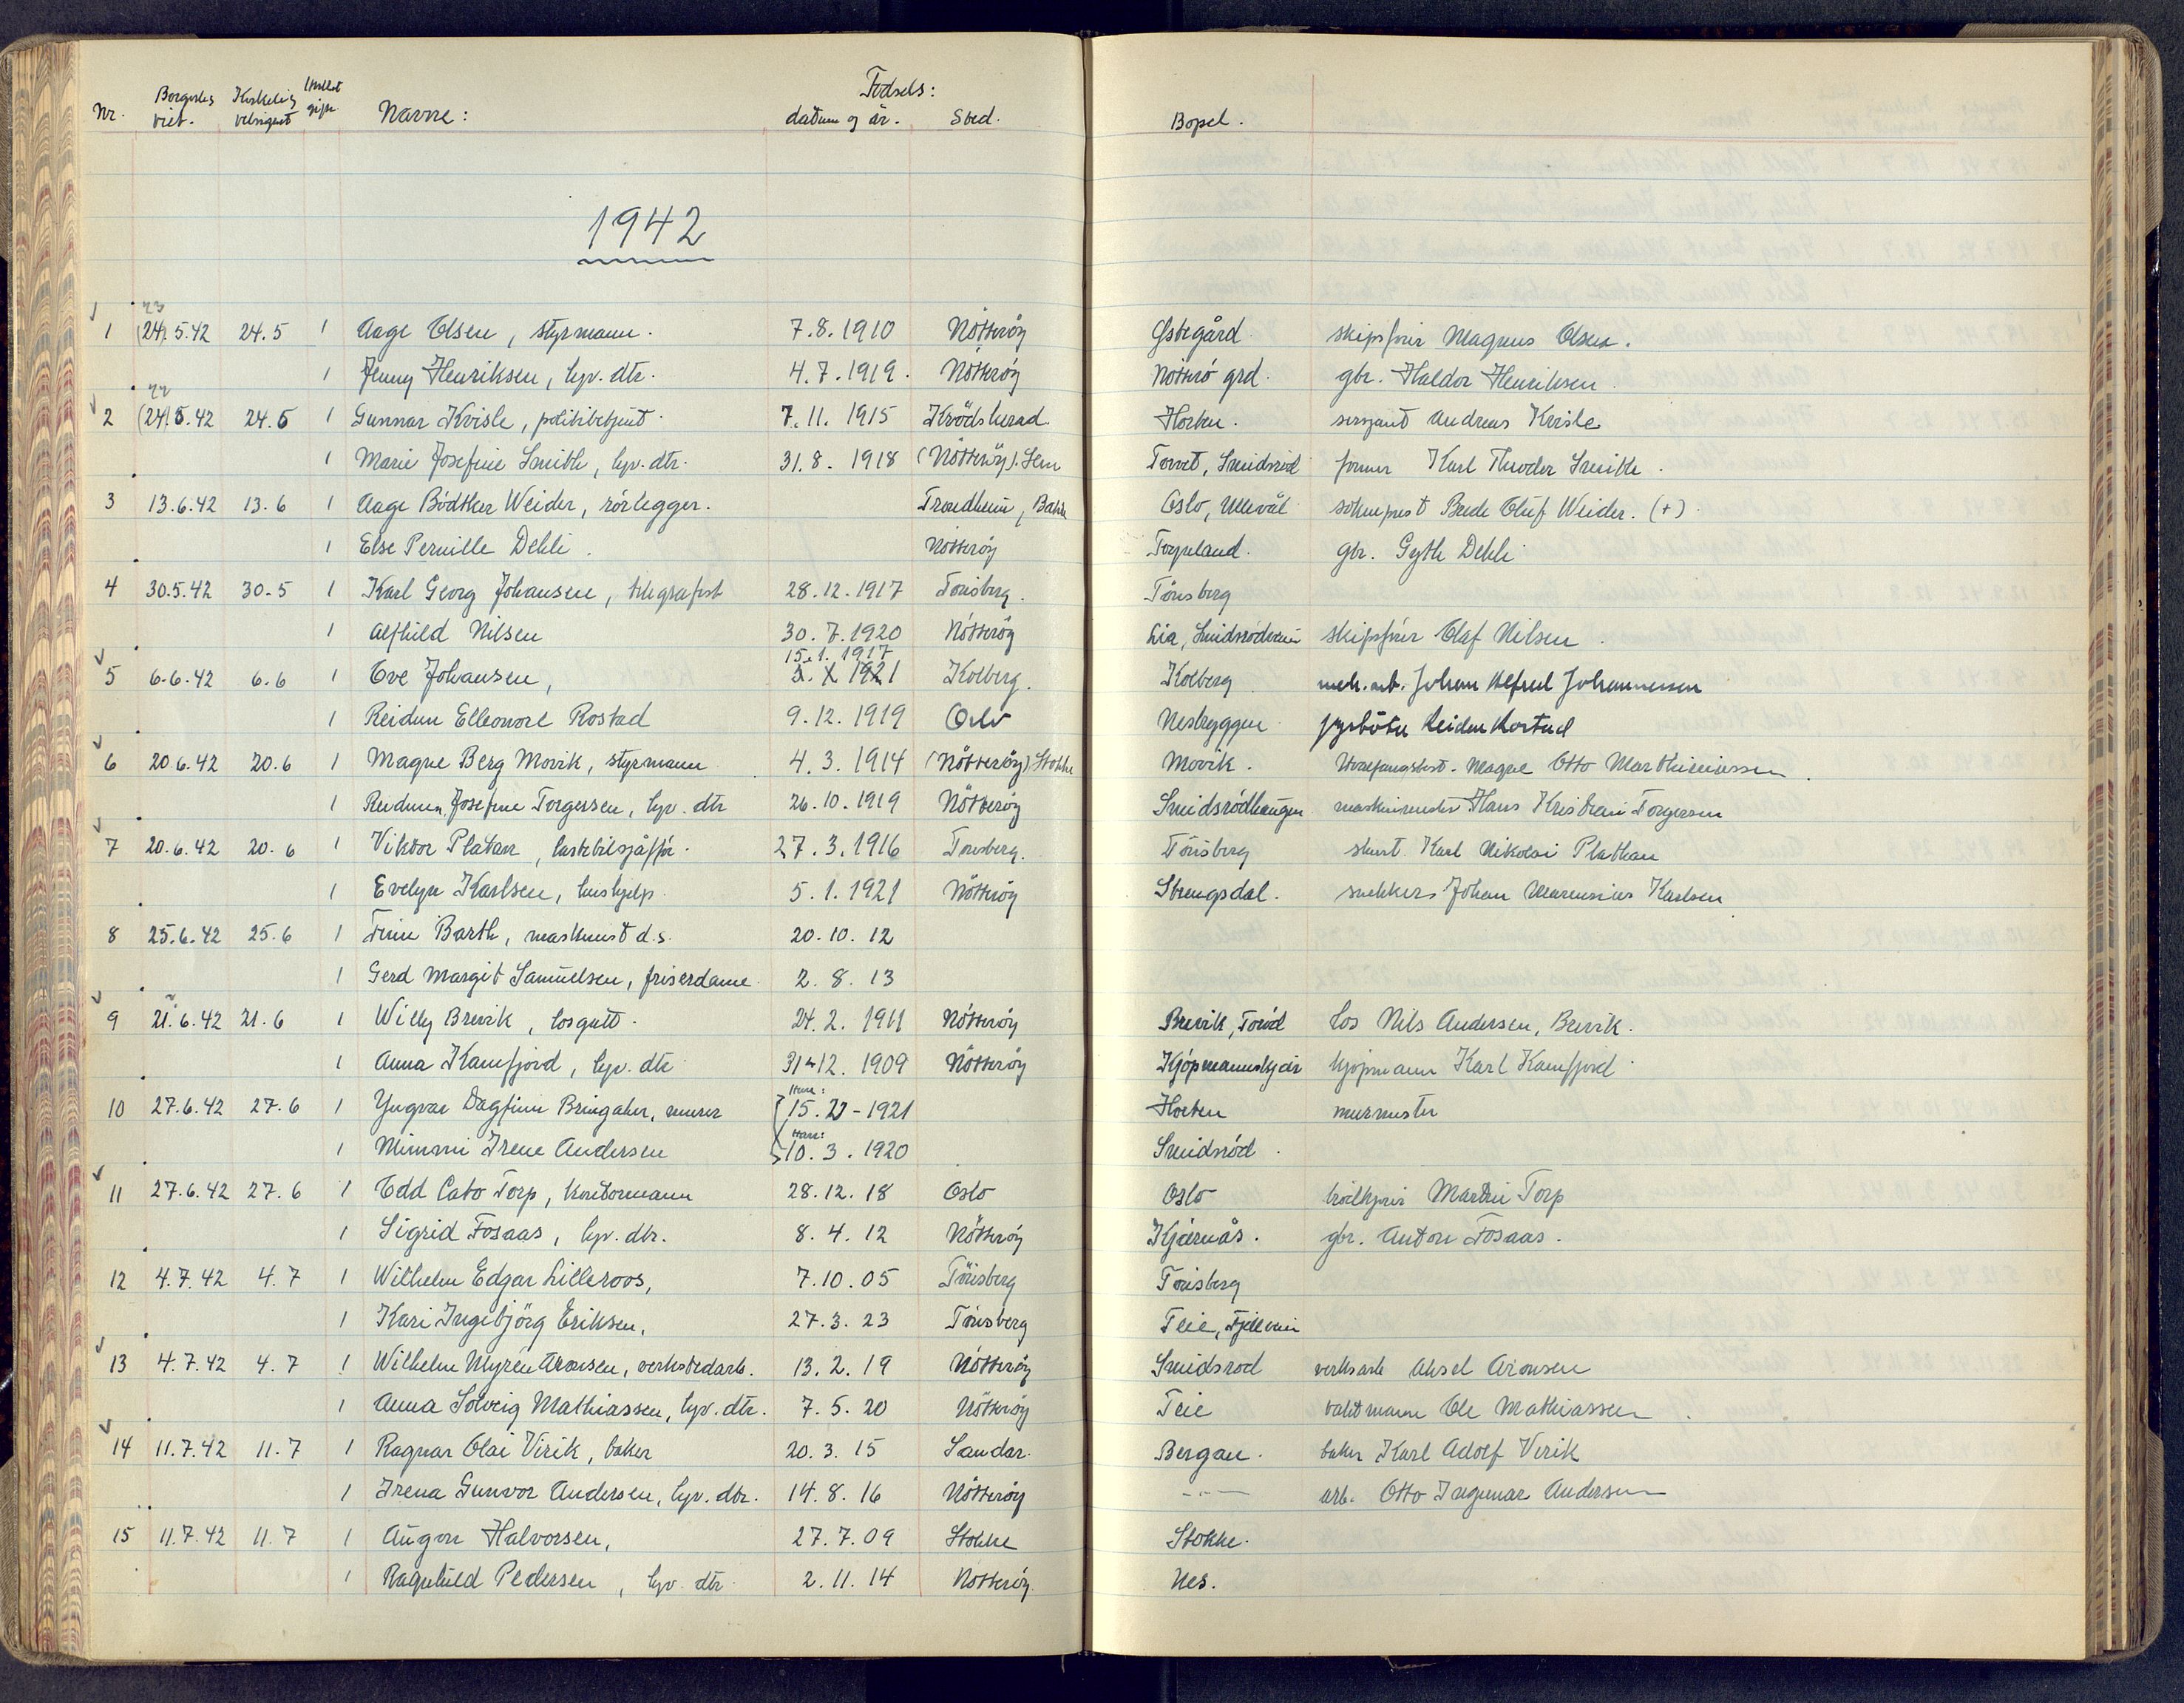 Fødsels:
Nr. Borgerlig viet. Kirkelig velsignet Hvilket gifte Navne: datum og år. Sted. Bopel.
1942
23
1 (24).5.42 24.5 1 Aage Olsen, styrmann. 7.8.1910 Nötteröy Østegård skipsfører Magnus Olsen.
1 Jenny Henriksen, hjv. dtr. 4.7.1919. Nötteröy Nötterö grd. gbr. Haldor Henriksen
22
2 (24).5.42 24.5 1 Gunnar Kvisle, politibetjent. 7.11.1915 Krödsherad Horten. sersjant Andreas Kvisle
1 Marie Josefine Smith, hjv. dtr. 31.8.1918 (Nötteröy). Sem Torvet, Smidsröd former Karl Theodor Smith.
3 13.6.42 13.6 1 Aage Bödtker Weider, rörlegger. Trondheim, Bakke Oslo, Ullevål sokneprest Brede Oluf Weider. (+)
1 Else Pernille Dehli. Nötteröy Torpeland. gbr. Gyth Dehli
4 30.5.42 30.5 1 Karl Georg Johansen, telegrafist 28.12.1917 Tönsberg. Tönsberg
1 Alfhild Nilsen 30.7.1920 Nötteröy Lia, Smidsrödveien skipsfører Olaf Nilsen.
15.1.1917
5 6.6.42 6.6 1 Ove Johansen, 1921 Kolberg. Kolberg mek. arb. Johan Alfred Johannessen
1 Reidun Elleonore Rostad 9.12.1919 Oslo Nesbryggen fyrböter Reidar Rostad
6 20.6.42 20.6 1 Magne Berg Movik, styrmann 4.3.1914 (Nötteröy) Stokke Movik. Hvalfangstbest. Magne Otto Marthiniussen.
1 Reidunn Josefine Torgersen, hjv. dtr 26.10.1919 Nötteröy Smidsrödhaugen maskinmester Hans Kristian Torgersen
7 20.6.42 20.6 1 Viktor Platan, lastebilsjåfør. 27.3.1916 Tönsberg. Tönsberg stuert. Karl Nikolai Plathan
1 Evelyn Karlsen, hushjelp. 5.1.1921 Nötteröy Strengsdal. snekker Johan Marensius Karlsen
8 25.6.42 25.6 1 Finn Barth, maskinist d.s. 20.10.12
1 Gerd Margit Samuelsen, friserdame. 2.8.13
9 21.6.42 21.6 1 Willy Brevik, losgutt. 24.2.1911 Nötteröy Brevik, Toröd Los Nils Andersen, Brevik.
1 Anna Kamfjord, hjv. dtr 31-12.1909 Nötteröy Kjöpmannskjær kjöpmann Karl Kamfjord
Hun:
10 27.6.42 27.6 1 Yngvar Dagfinn Bringaker, murer 15.-1921 Horten murmester
Han:
1 Mimmi Irene Andersen 10.3.1920 Smidsröd.
11 27.6.42 27.6 1 Odd Cato Torp, kontormann 28.12.18 Oslo Oslo Martin Torp
1 Sigrid Fosaas, hjv. dtr. 8.4.12 Nötteröy Kjærnås. gbr. Anton Fosaas.
12 4.7.42 4.7 1 Wilhelm Edgar Lilleroos, 7.10.05 Tönsberg Tönsberg
1 Kari Ingebjörg Eriksen, 27.3.23 Tönsberg Teie, Fjellvein
13 4.7.42 4.7 1 Wilhelm Myren Aronsen, verkstedarb. 13.2.19 Nötteröy Smidsröd verksarb Aksel Aronsen
1 Anna Solveig Mathiassen, hjv. dtr. 7.5.20 Nötteröy Teie vaktmann Ole Mathiassen.
14 11.7.42 11.7 1 Ragnar Olai Virik, baker 20.3.15 Sandar. Bergan. baker Karl Adolf Virik
1 Irena Gunvor Andersen, hjv. dtr. 14.8.16 Nötteröy --- arb. Otto Ingemar Andersen
15 11.7.42 11.7 1 Augon Halvorsen, 27.7.09 Stokke Stokke.
1 Ragnhild Pedersen, hjv. dtr. 2.11.14 Nötteröy. Nes.